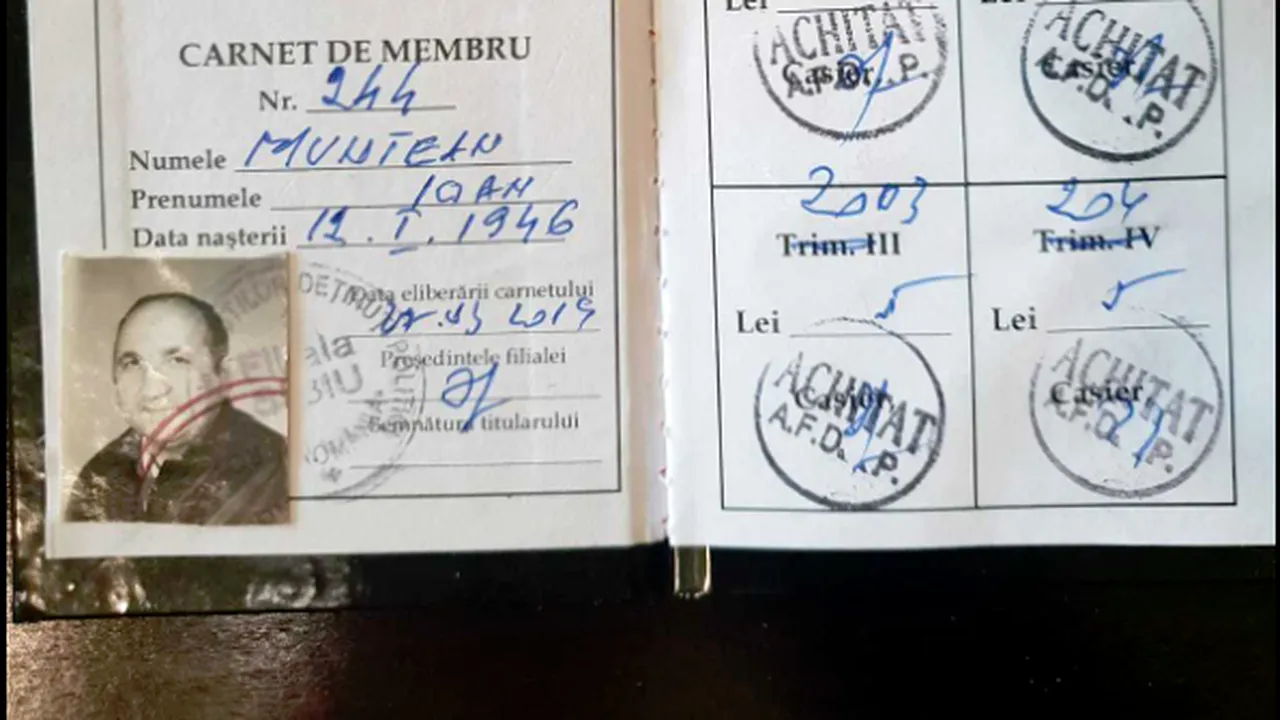 CARNET DE MEMBRU
Nr. 244
Numele MUNTEAN
Prenumele IOAN
Data nașterii 12.I.1946
Data eliberării carnetului
2019
Președintele filialei
Semnătura titularului
DEȚINUȚI
Lei
ACHITAT
Casier
A.F.D. P.
Lei
ACHITAT
Casier
A.F.D. P.
2003
Trim. III
Lei 5
ACHITAT
Casier
A.F.D. P.
204
Trim. IV
Lei 5
ACHITAT
Casier
A.F.D. P.